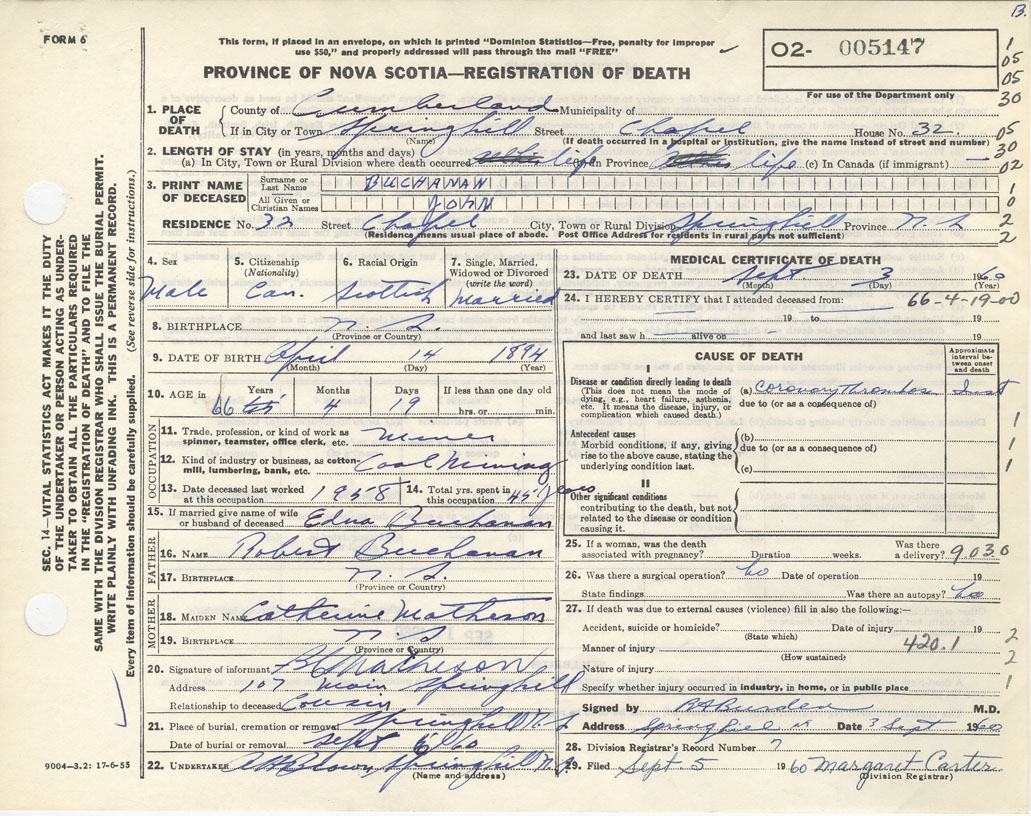 B.
FORM 6
This form, if placed in an envelope, on which is printed "Dominion Statistics—Free, penalty for improper
use $50," and properly addressed will pass through the mail "FREE"
O2- 005147
For use of the Department only
PROVINCE OF NOVA SCOTIA—REGISTRATION OF DEATH
1
05
05
30
05
30
02
1
0
2
2
1. PLACE OF DEATH
County of Cumberland Municipality of
If in City or Town Springhill Street Chapel House No. 32.
(Name) (If death occurred in a hospital or institution, give the name instead of street and number)
2. LENGTH OF STAY (in years, months and days)
(a) In City, Town or Rural Division where death occurred life (b) In Province life (c) In Canada (if immigrant) —
3. PRINT NAME OF DECEASED
Surname or Last Name BUCHANAN
All Given or Christian Names JOHN
RESIDENCE No. 32 Street Chapel City, Town or Rural Division Springhill Province N.S.
(Residence means usual place of abode. Post Office Address for residents in rural parts not sufficient)
4. Sex
Male
5. Citizenship
(Nationality)
Can.
6. Racial Origin
Scottish
7. Single, Married, Widowed or Divorced
(write the word)
Married
8. BIRTHPLACE N. S.
(Province or Country)
9. DATE OF BIRTH April 14 1894
(Month) (Day) (Year)
10. AGE in
Years Months Days If less than one day old
66 4 19 hrs. or min.
OCCUPATION
11. Trade, profession, or kind of work as spinner, teamster, office clerk, etc. Miner
12. Kind of industry or business, as cotton-mill, lumbering, bank, etc. Coal Mining
13. Date deceased last worked at this occupation 1958
14. Total yrs. spent in this occupation 45 years
15. If married give name of wife or husband of deceased Edna Buchanan
FATHER
16. NAME Robert Buchanan
17. BIRTHPLACE N. S.
(Province or Country)
MOTHER
18. MAIDEN NAME Catherine Matheson
19. BIRTHPLACE N. S
(Province or Country)
20. Signature of informant Matheson
Address 107 Main Springhill
Relationship to deceased Cousin
21. Place of burial, cremation or removal Springhill N.S
Date of burial or removal Sept 6/60
22. UNDERTAKER Brown, Springhill N.S.
(Name and address)
MEDICAL CERTIFICATE OF DEATH
23. DATE OF DEATH Sept 3 1960
(Month) (Day) (Year)
66-4-19-00
24. I HEREBY CERTIFY that I attended deceased from:
19 to 19
and last saw h alive on 19
CAUSE OF DEATH
Approximate interval between onset and death
I
Disease or condition directly leading to death
(This does not mean the mode of dying, e.g., heart failure, asthenia, etc. It means the disease, injury, or complication which caused death.)
(a) coronary thrombosis Inst
due to (or as a consequence of)
Antecedent causes
Morbid conditions, if any, giving rise to the above cause, stating the underlying condition last.
(b)
due to (or as a consequence of)
(c)
1
1
1
II
Other significant conditions
contributing to the death, but not related to the disease or condition causing it.
25. If a woman, was the death associated with pregnancy? Duration weeks. Was there a delivery?
9030
26. Was there a surgical operation? no Date of operation 19
State findings Was there an autopsy? no
27. If death was due to external causes (violence) fill in also the following:—
Accident, suicide or homicide? Date of injury 19
(State which)
Manner of injury 420.1
(How sustained)
Nature of injury
Specify whether injury occurred in industry, in home, or in public place
2
2
1
Signed by Burden M.D.
Address Springhill NS Date 3 Sept 1960
28. Division Registrar's Record Number 7
29. Filed Sept. 5 1960 Margaret Carter
(Division Registrar)
SEC. 14—VITAL STATISTICS ACT MAKES IT THE DUTY
OF THE UNDERTAKER OR PERSON ACTING AS UNDER-
TAKER TO OBTAIN ALL THE PARTICULARS REQUIRED
IN THE "REGISTRATION OF DEATH" AND TO FILE THE
SAME WITH THE DIVISION REGISTRAR WHO SHALL ISSUE THE BURIAL PERMIT.
WRITE PLAINLY WITH UNFADING INK. THIS IS A PERMANENT RECORD.
Every item of information should be carefully supplied. (See reverse side for instructions.)
9004—3.2: 17-6-55